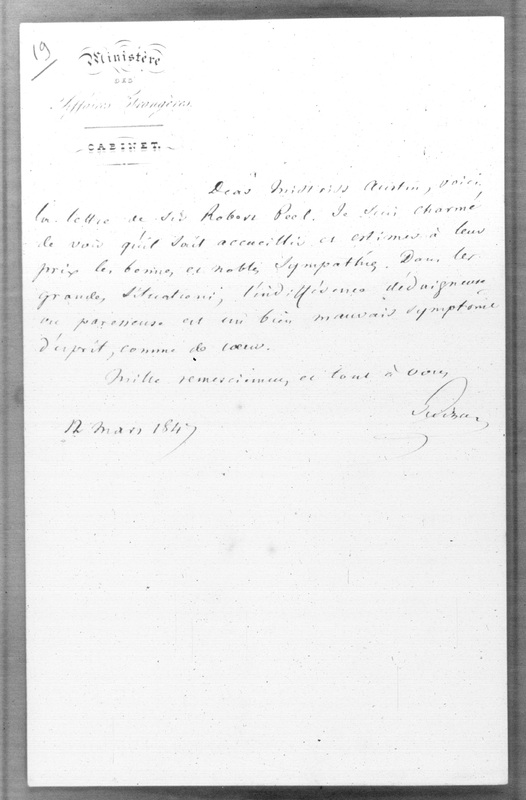 19
Ministère
DES
Affaires Etrangères
CABINET.
Dear Mistriss Austin, voici
la lettre de Sir Robert Peel. Je suis charmé
de voir qu'il sait accueillir et estimer à leur
prix les bonnes et nobles Sympathies. Dans les
grandes Situations, l'indifférence dédaigneuse
ou paresseuse est un bien mauvais Symptome
d'esprit, comme de coeur.
Mille remerciemens, et tout à vous
Guizot
12 Mars 1847